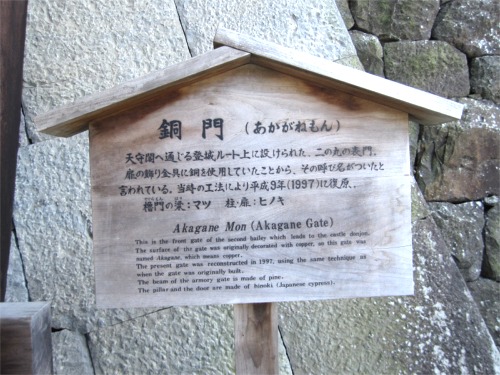 銅門（あかがねもん）
天守閣へ通じる登城ルート上に設けられた、二の丸の表門。
扉の飾り金具に銅を使用していたことから、その呼び名がついたと
言われている。当時の工法により平成9年(1997)に復原。
櫓門の梁:マツ 柱・扉:ヒノキ
Akagane Mon (Akagane Gate)
This is the front gate of the second bailey which leads to the castle donjon.
The surface of the gate was originally decorated with copper, so this gate was
named Akagane, which means copper.
The present gate was reconstructed in 1997, using the same technique as
when the gate was originally built.
The beam of the armory gate is made of pine.
The pillar and the door are made of hinoki (Japanese cypress).